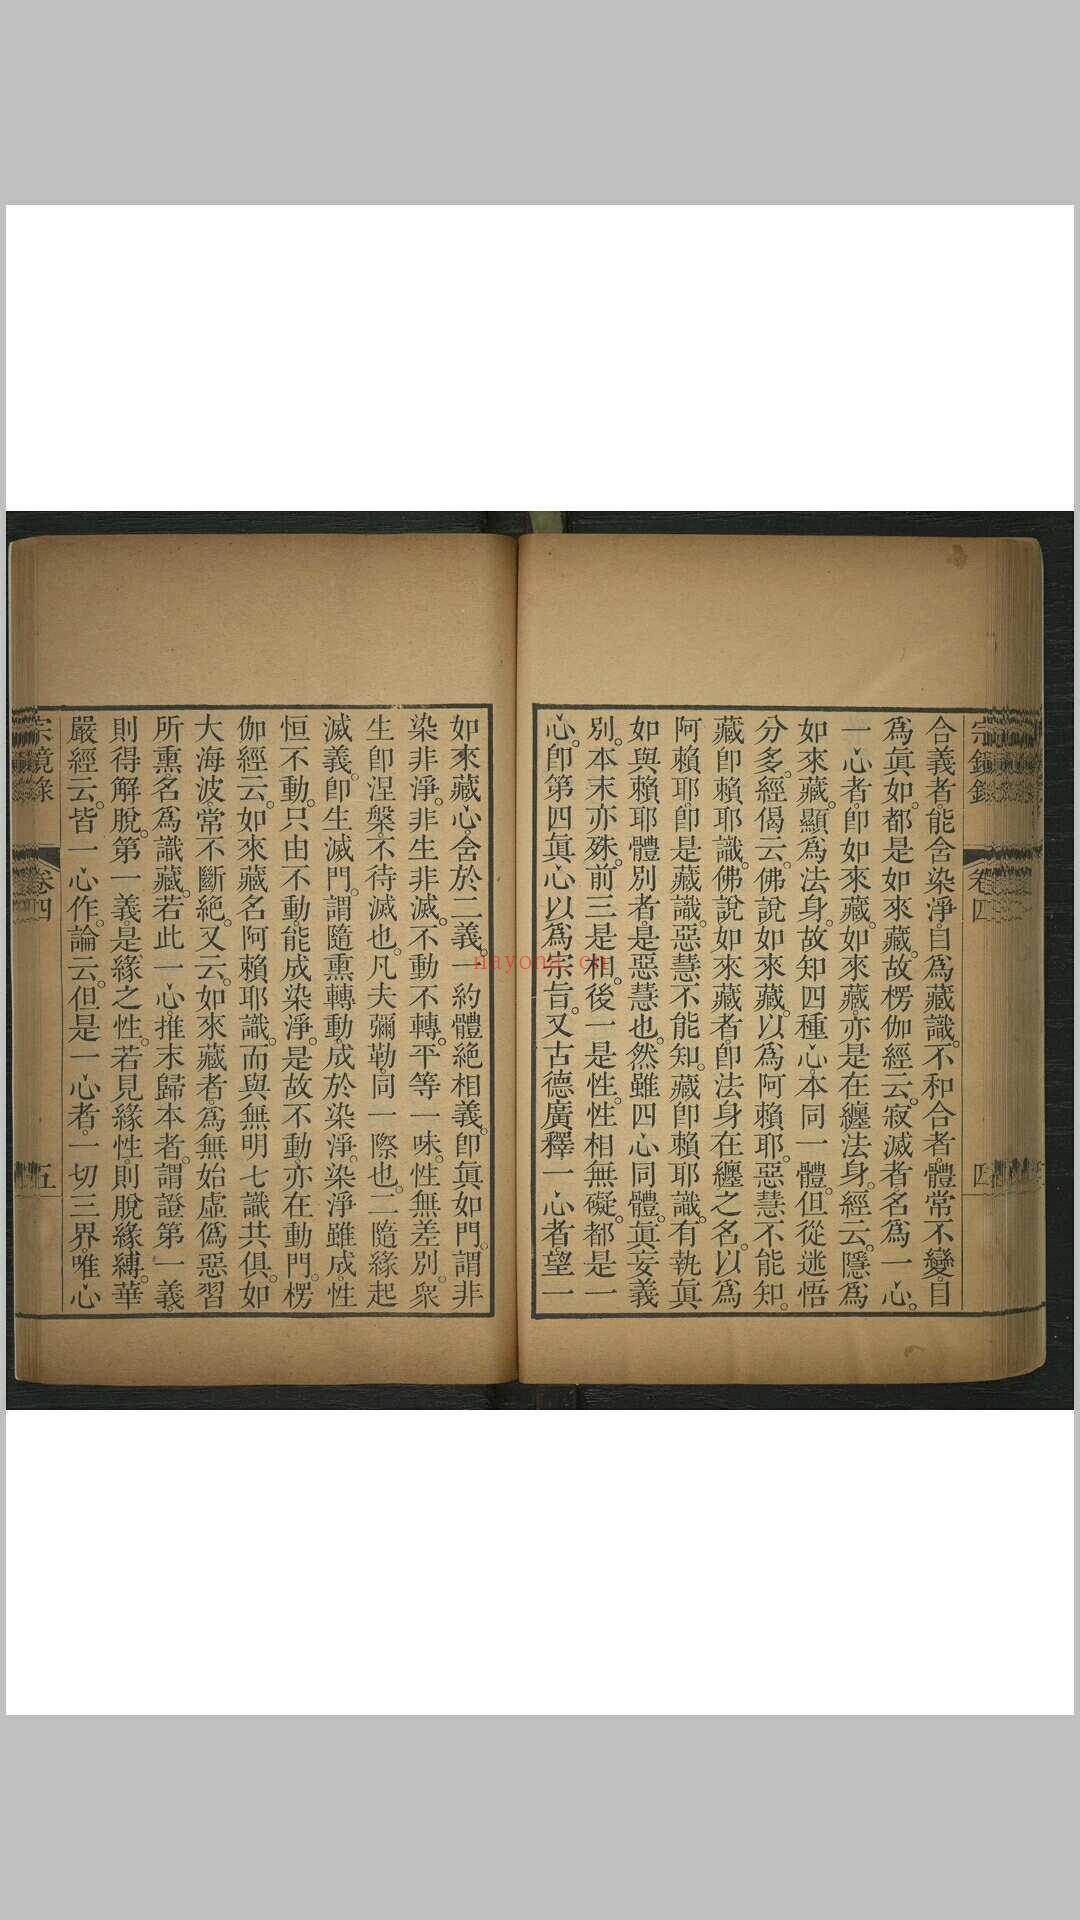 宗鏡錄
卷四
四
合義者。能含染淨。目爲藏識。不和合者。體常不變。目
爲眞如。都是如來藏。故楞伽經云。寂滅者名爲一心。
一心者。卽如來藏。如來藏。亦是在纏法身。經云。隱爲
如來藏。顯爲法身。故知四種心。本同一體。但從迷悟
分多。經偈云。佛說如來藏。以爲阿賴耶。惡慧不能知。
藏卽賴耶識。佛說如來藏者。卽法身在纏之名。以爲
阿賴耶。卽是藏識。惡慧不能知。藏卽賴耶識。有執眞
如與賴耶體別者。是惡慧也。然雖四心同體。眞妄義
別。本末亦殊。前三是相。後一是性。性相無礙。都是一
心。卽第四眞心以爲宗旨。又古德廣釋一心者。望一
如來藏心。含於二義。一約體絕相義。卽眞如門。謂非
染非淨。非生非滅。不動不轉。平等一味。性無差別。衆
生卽涅槃。不待滅也。凡夫彌勒。同一際也。二隨緣起
滅義。卽生滅門。謂隨熏轉動。成於染淨。染淨雖成。性
恒不動。只由不動。能成染淨。是故不動亦在動門。楞
伽經云。如來藏名阿賴耶識。而與無明七識共俱。如
大海波。常不斷絕。又云。如來藏者。爲無始虛僞惡習
所熏。名爲識藏。若此一心。推末歸本者。謂證第一義。
則得解脫。第一義。是緣之性。若見緣性。則脫緣縛。華
嚴經云。皆一心作。論云。但是一心者。一切三界。唯心
宗鏡錄
卷四
五
nayona.cn